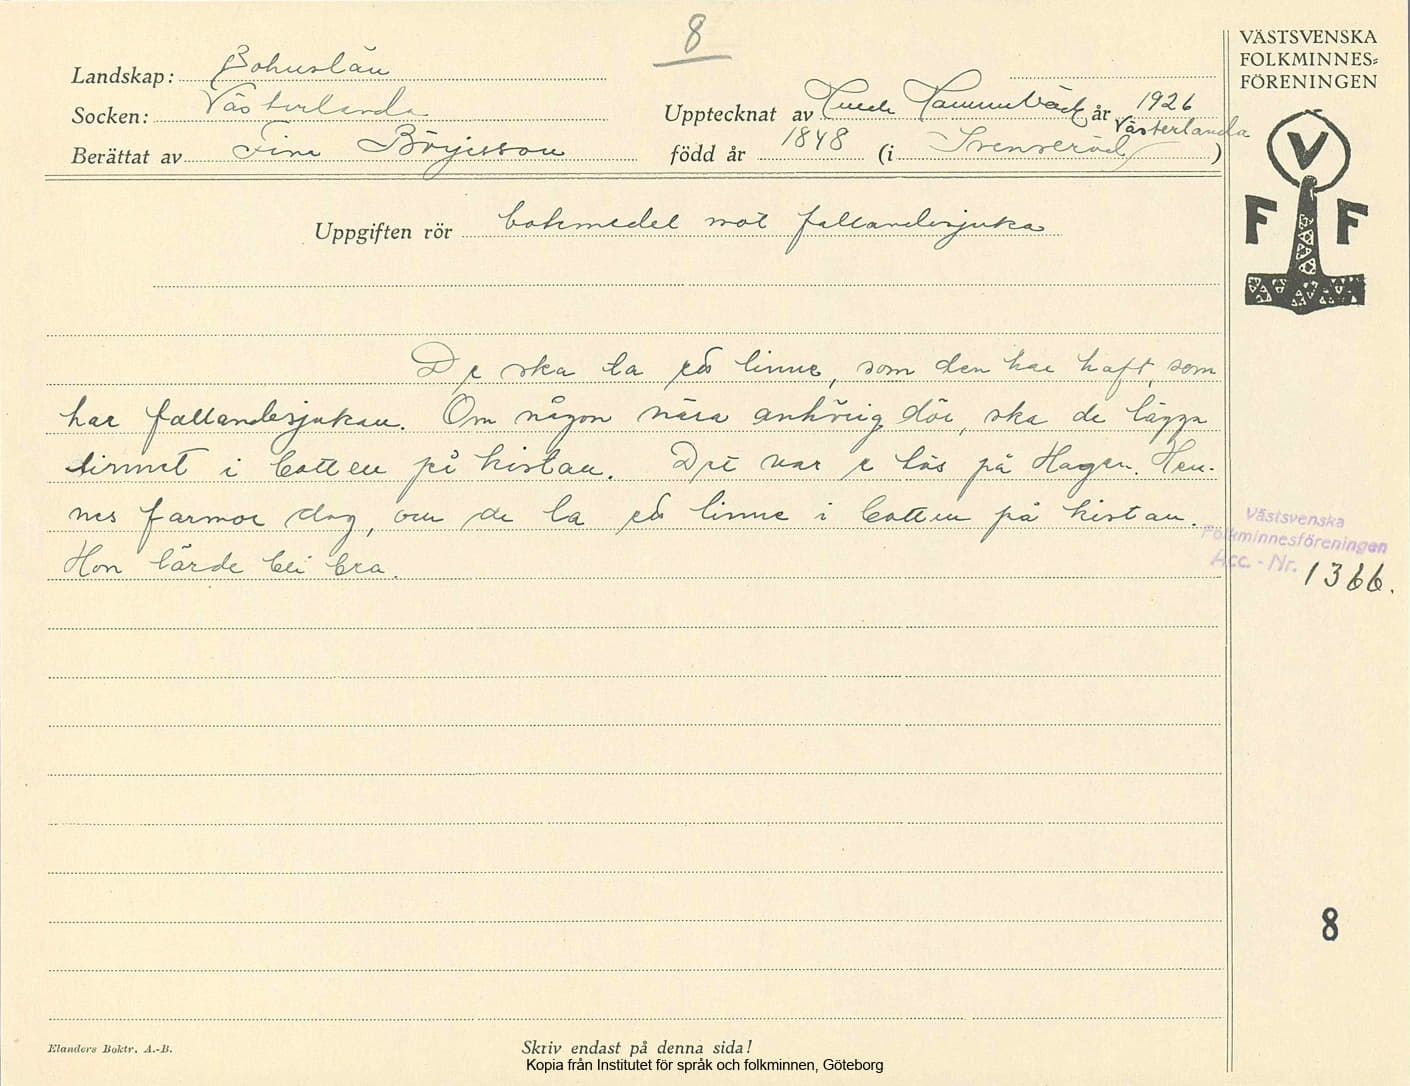 8
VÄSTSVENSKA
FOLKMINNES=
FÖRENINGEN
Landskap: Bohuslän
Socken: Västerlanda
Upptecknat av Hammarbäck år 1926
Berättat av Fina Börjesson född år 1848 (i Svenseröd Västerlanda)
V
F F
Uppgiften rör botemedel mot fallandesjuka
De ska ta ett linne, som den har haft, som
har fallandesjukan. Om någon nära anhörig dör, ska de lägga
linnet i botten på kistan. Det var e tös på Hagen. Hen-
nes farmor dog, och de la ett linne i botten på kistan.
Hon lärde bli bra.
Västsvenska
Folkminnesföreningen
Acc. - Nr. 1366.
8
Elanders Boktr. A.-B.
Skriv endast på denna sida!
Kopia från Institutet för språk och folkminnen, Göteborg